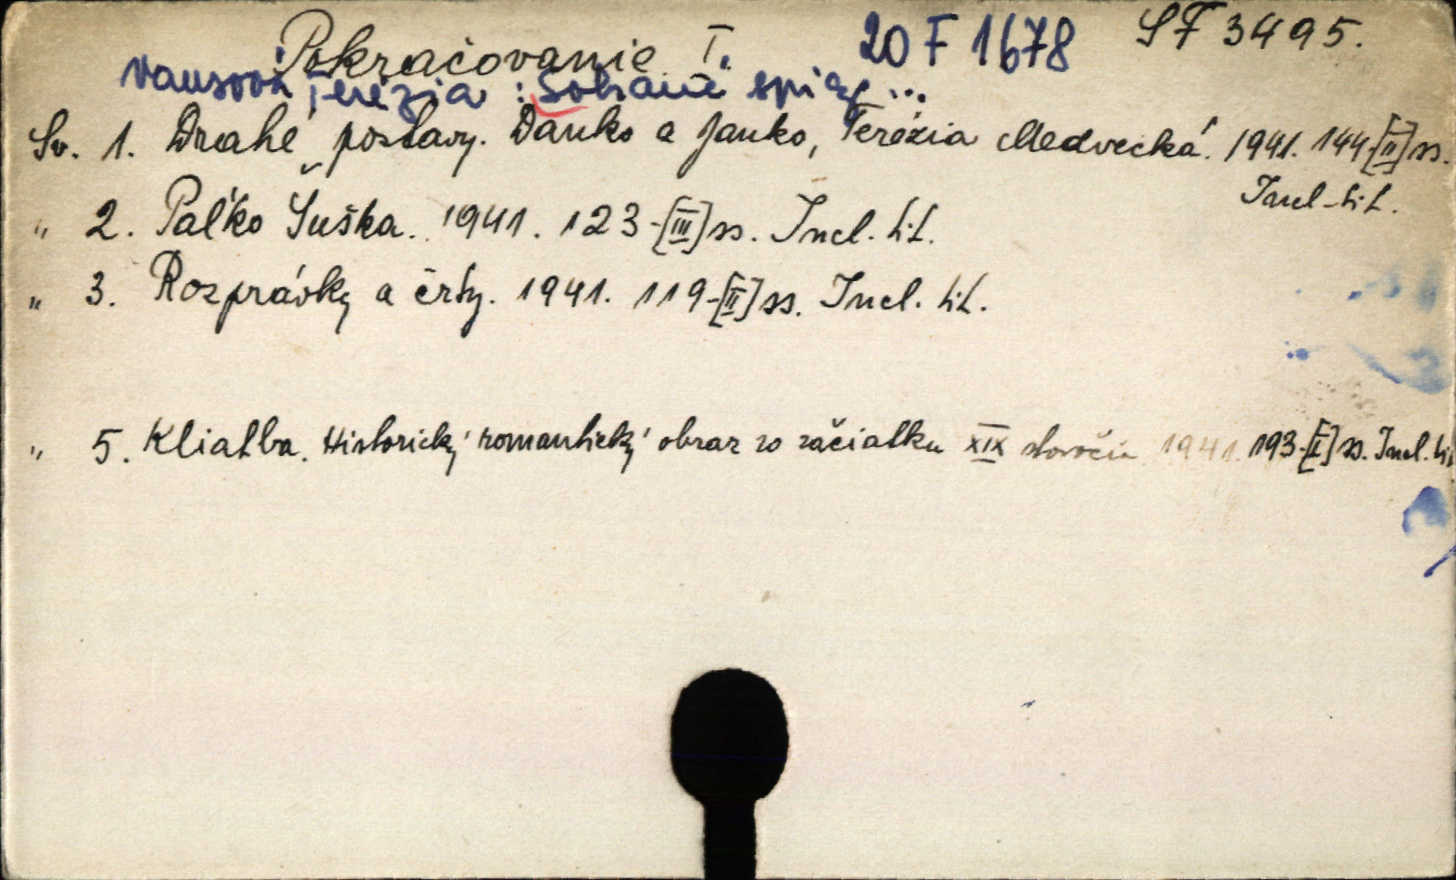 Pokračovanie I. 20 F 1678 SF 3495.
Vansová Terézia : Sobrané spisy ...
Sv. 1. Drahé postavy. Danko a Janko, Terézia Medvecká. 1941. 144-[II] ss.
Incl. tit.
" 2. Paľko Šuška. 1941. 123-[III] ss. Incl. tit.
" 3. Rozprávky a črty. 1941. 119-[II] ss. Incl. tit.
" 5. Kliatba. Historický romantický obraz zo začiatku XIX storočia 1941. 193-[I] ss. Incl. tit